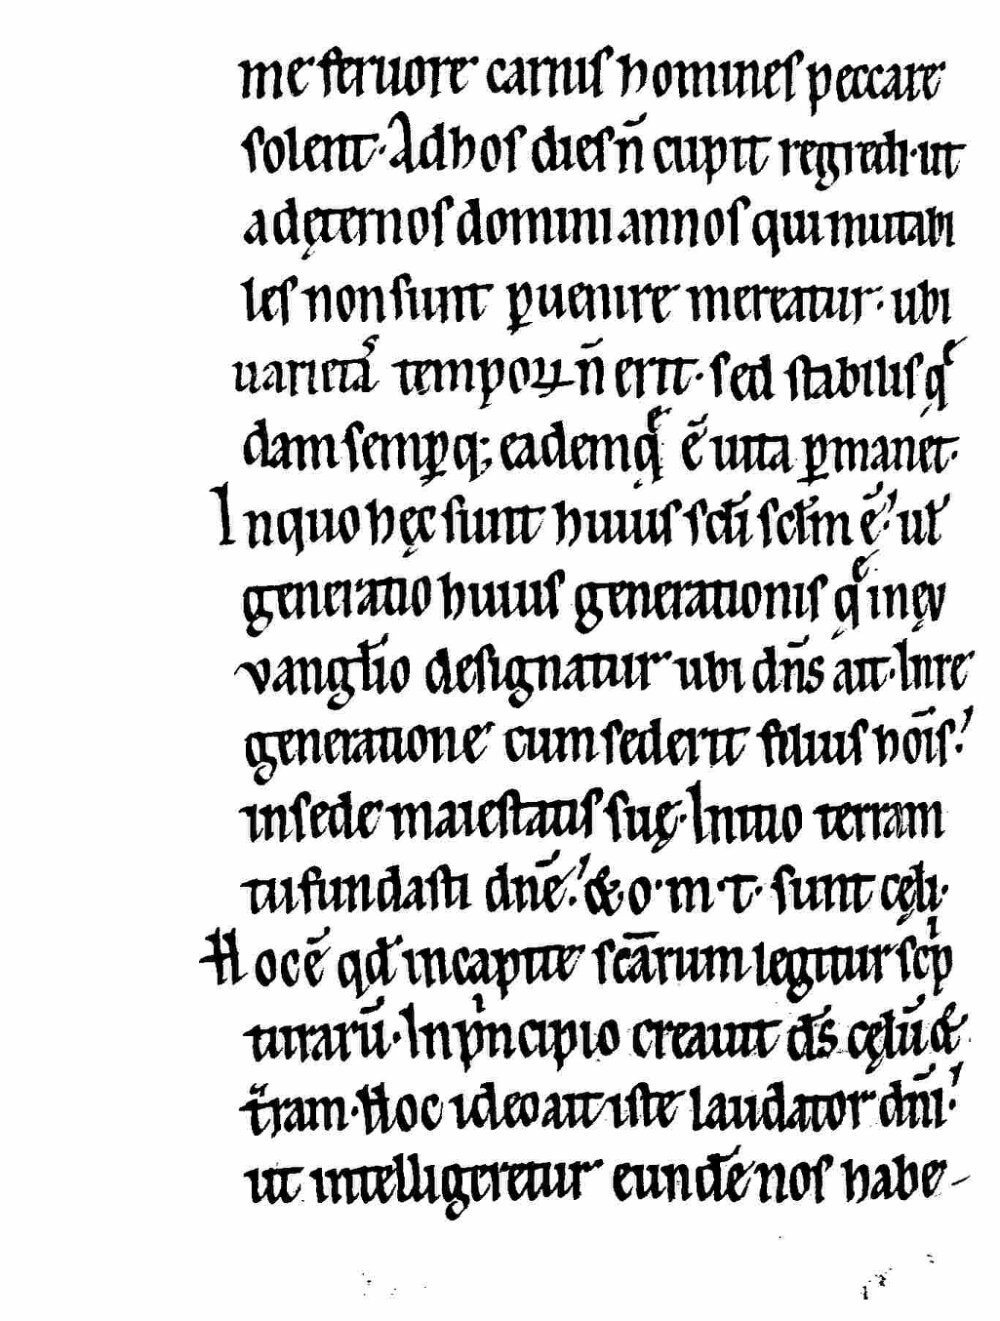 me feruore carnis homines peccare
solent. Ad hos dies n̄ cupit regredi. ut
ad ęternos domini annos qui mutabi
les non sunt ꝑuenire mereatur. ubi
uarietaˢ temporꝝ n̄ erit. sed stabilis q̨
dam semꝑ q; eademq̨ ē uita ꝑmanet.
In quo hęc sunt huius sc̄li sc̄lm ē. ut̄
generatio huius generationis q̨ in ęu
vangłio designatur ubi dn̄s ait. In re
generatione cum sederit filius hoīs.
in sede maiestatis suę. Initio terram
tu fundasti dn̄e. & o. m. t. sunt cęli.
Hoc ē qđ in capite sc̄arum legitur scⁱp
turarū. In pⁱncipio creauit d̄s cęlū &
t̄ram. Hoc ideo ait iste laudator dn̄i.
ut intelligeretur eundē nos habe-